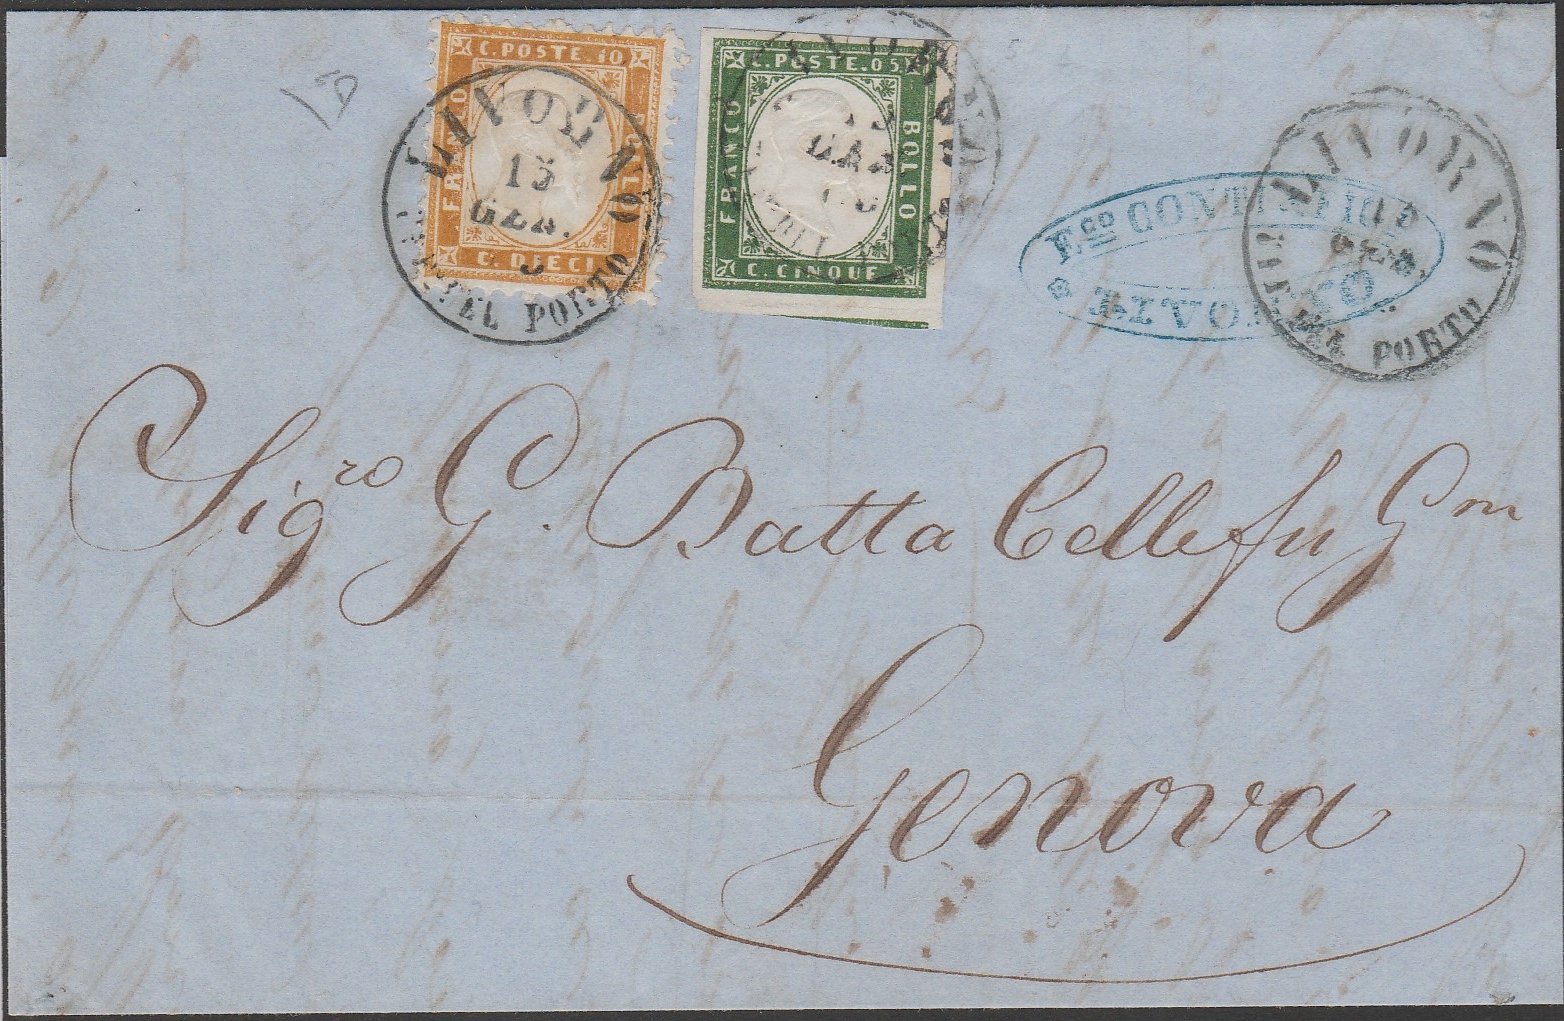 C. POSTE. 10
FRANCO
BOLLO
C. DIECI
LIVORNO
15
GEN.
DEL PORTO
C. POSTE. 05
FRANCO
BOLLO
C. CINQUE
LIVORNO
GEN
LIVORNO
GEN
DEL PORTO
F.sco
Sig.ro G. Batta Celle fu Gm
Genova